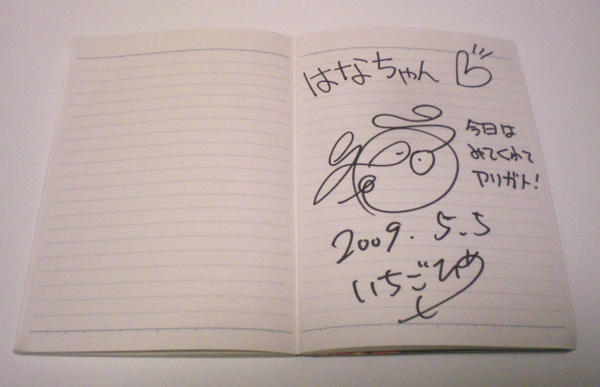 はなちゃん
今日は
みてくれて
アリガト!
2009.5.5
いちごひめ